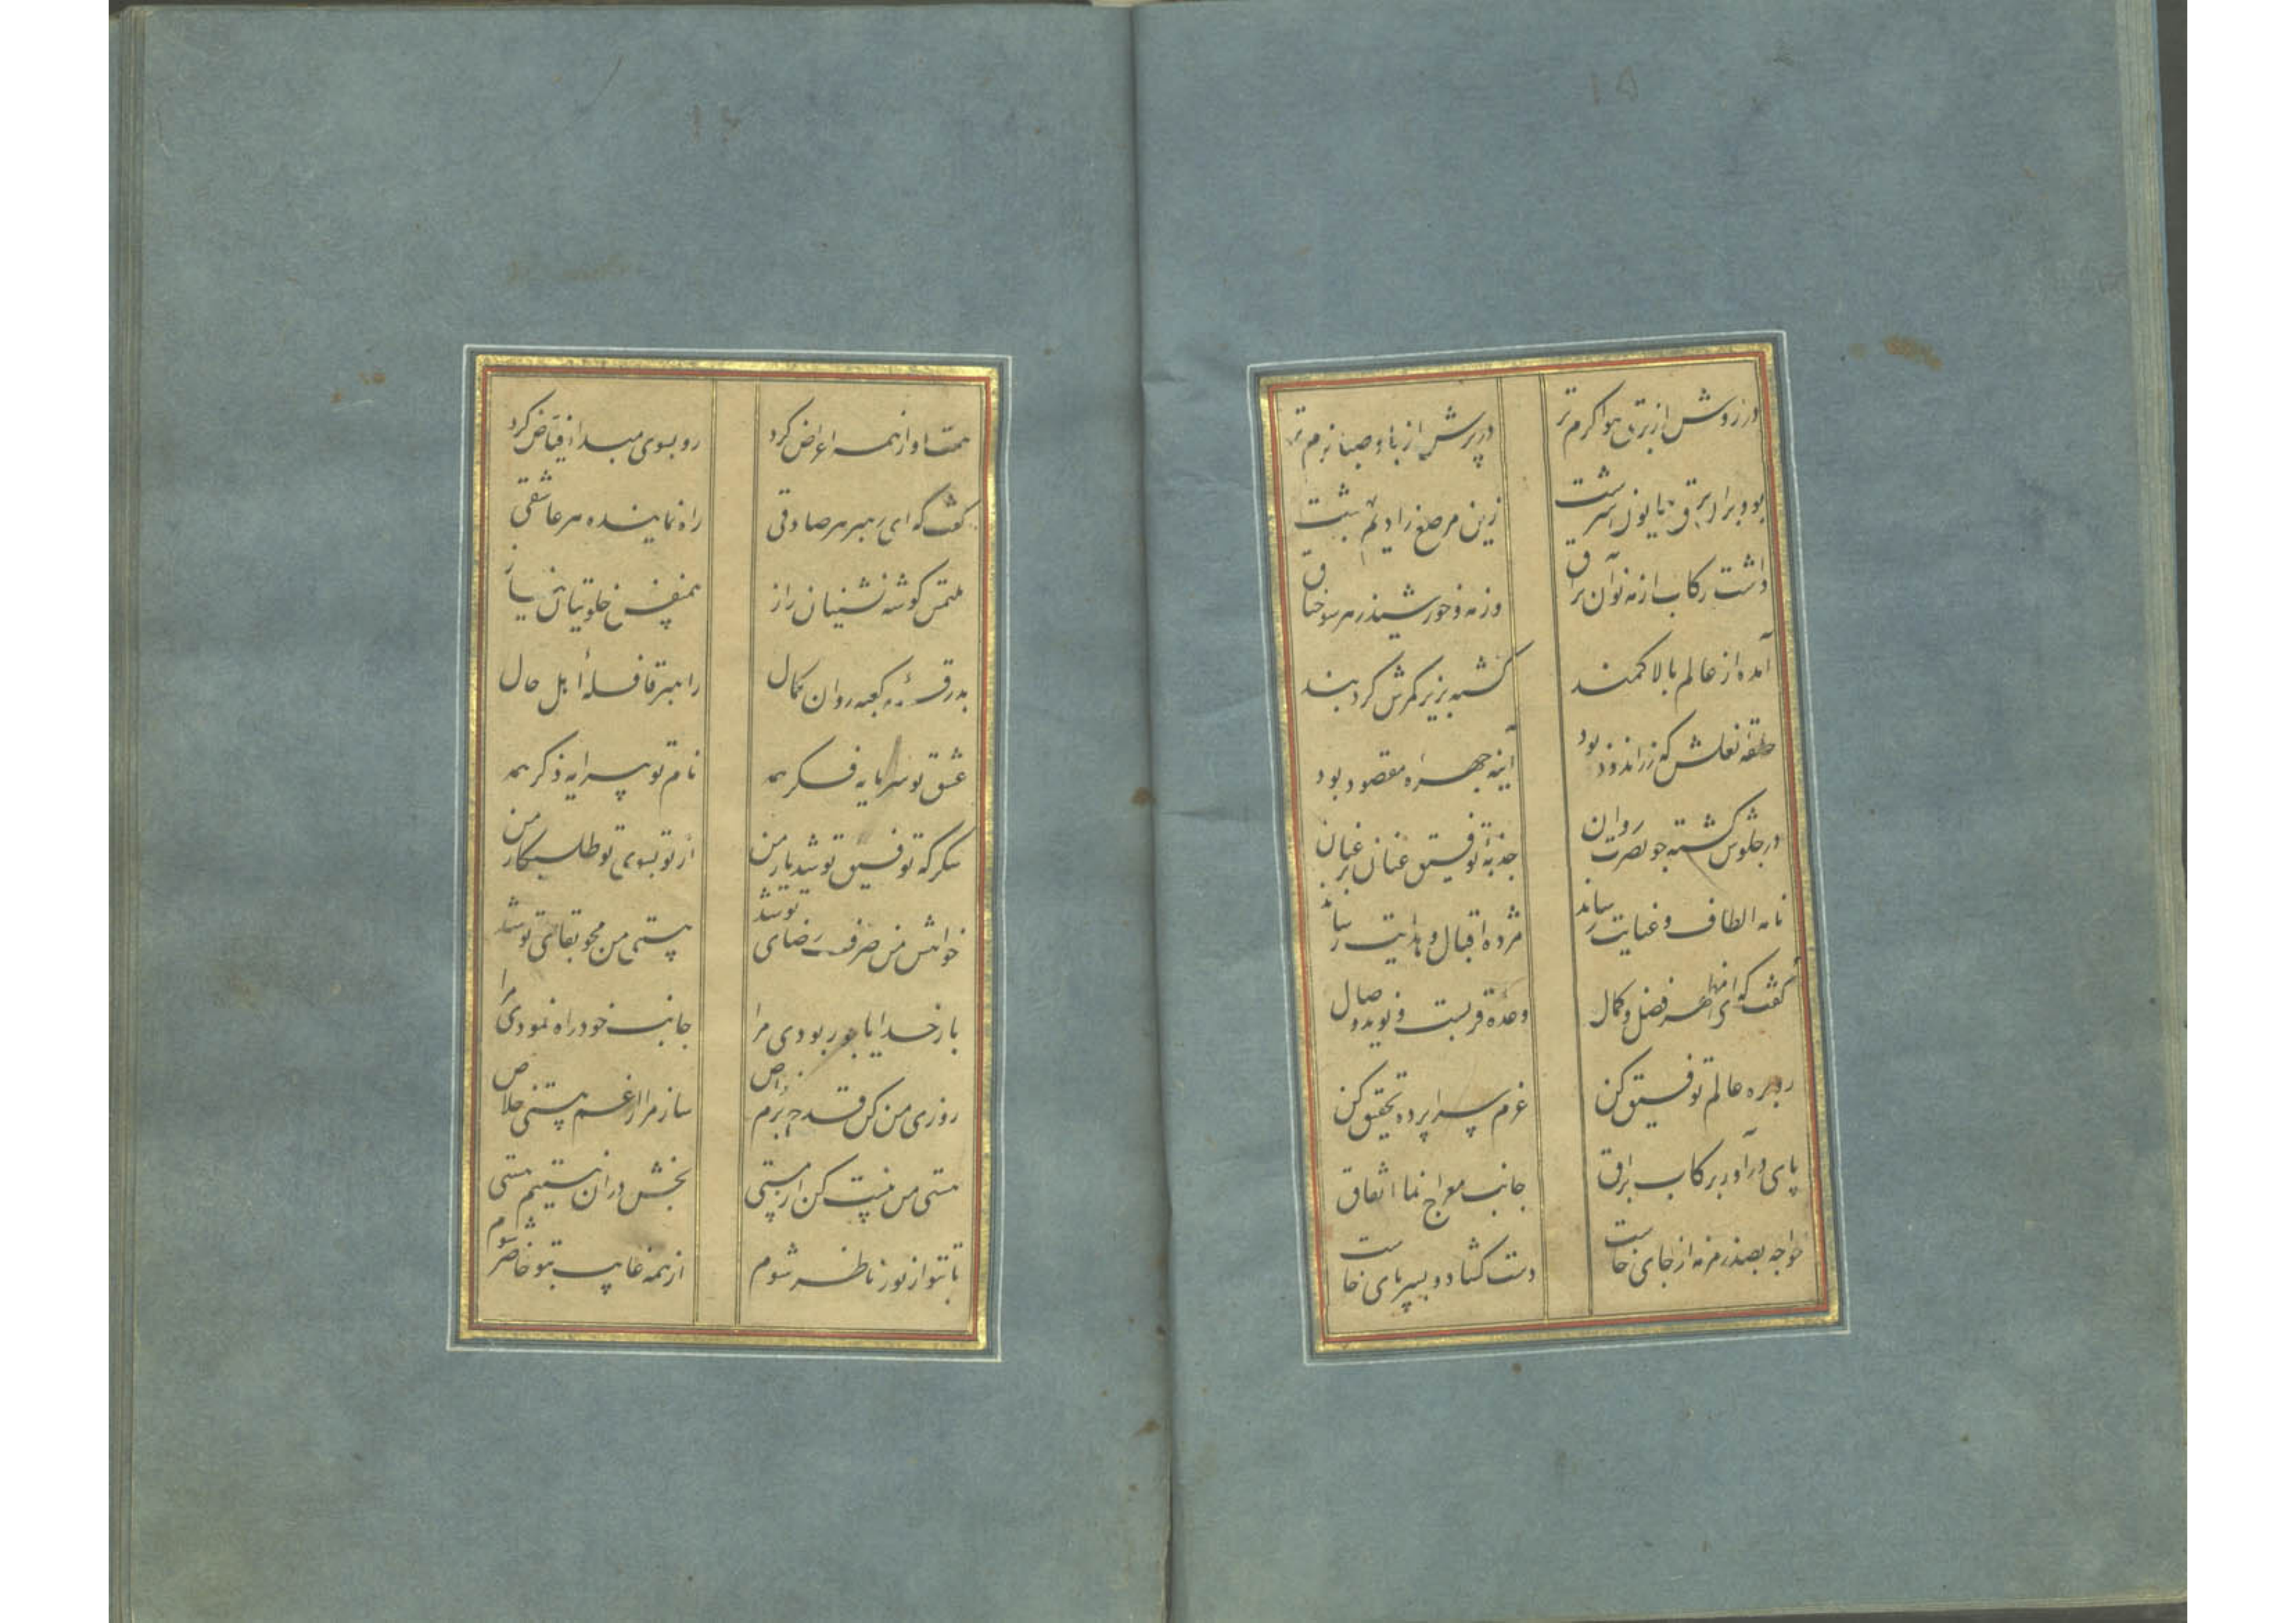 ۱۵
در روش از برق هوا گرم تر
در پرش از باد صبا نرم تر
بود براق همایون سرشت
زین مرصع ز ادیم بهشت
داشت رکاب از مه نو آن براق
وز مه و خورشید زهر سو جناق
آمده از عالم بالا کمند
گشته بزیر کمرش کرد بند
حلقه نعلش که زراندود بود
آینه چهره مقصود بود
در جلوش گشته چو نصرت روان
جذبه توفیق عنان بر عنان
نامه الطاف و عنایت رساند
مژده اقبال و هدایت رساند
گفت که ای مظهر فضل و کمال
وعده قربست و نوید وصال
رو بره عالم توفیق کن
عزم سراپرده تحقیق کن
پای درآور برکاب براق
جانب معراج نما اتفاق
خواجه بصد زمزمه از جای خاست
دست گشاد و بسر پای خاست
۱۶
همت او از همه اعراض کرد
رو بسوی مبدا فیاض کرد
گفت که ای رهبر هر صادقی
راه نماینده هر عاشقی
ملتمس گوشه نشینان راز
همنفس خلوتیان نیاز
بدرقه کعبه روان کمال
راهبر قافله اهل حال
عشق تو سرمایه فکر همه
نام تو پیرایه ذکر همه
شکر که توفیق تو شد یار من
از تو بسوی تو طلبکار من
خواهش من صرف رضای تو شد
هستی من محو بقای تو شد
بار خدایا چو ربودی مرا
جانب خود راه نمودی مرا
روزی من کن قدح بزم خاص
ساز مرا از غم هستی خلاص
هستی من نیست کن از هستی
بخش در آن نیستیم هستی
تا بتو از نور تو ناظر شوم
از همه غایب بتو حاضر شوم